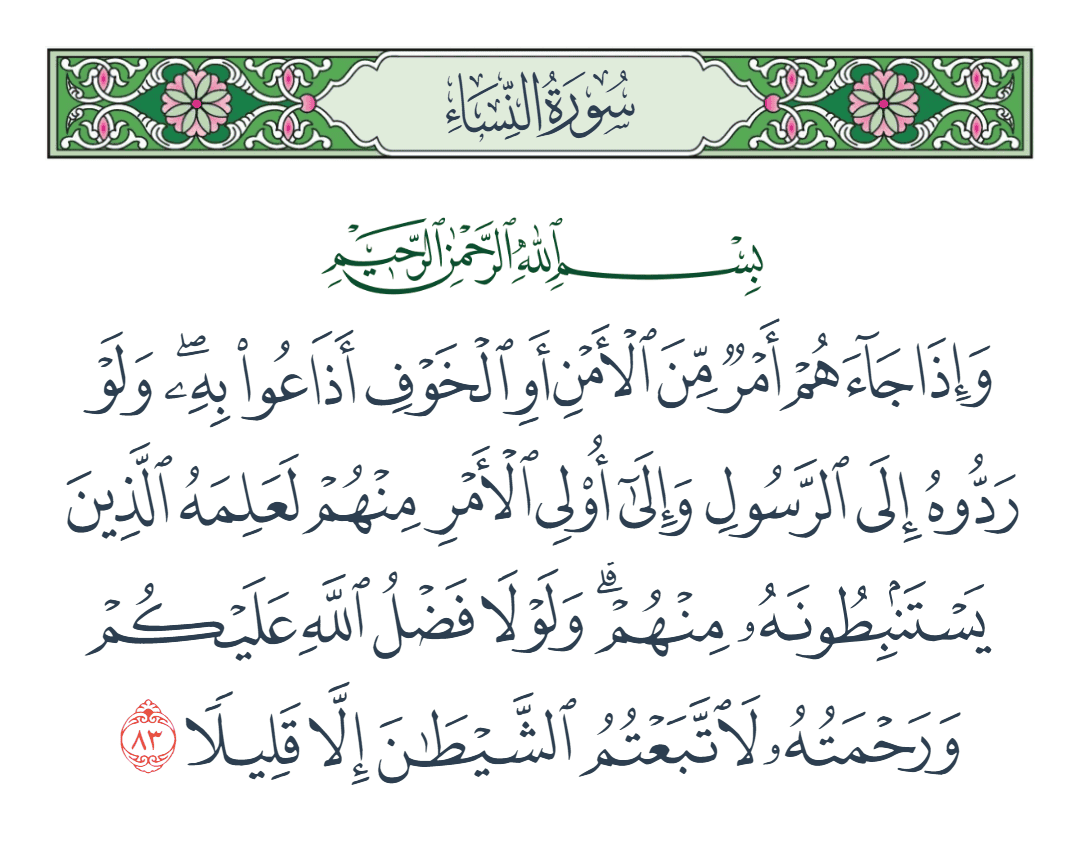 سُورَةُ النِّسَاءِ
بِسْمِ ٱللَّهِ ٱلرَّحْمَٰنِ ٱلرَّحِيمِ
وَإِذَا جَآءَهُمْ أَمْرٌ مِّنَ ٱلْأَمْنِ أَوِ ٱلْخَوْفِ أَذَاعُوا۟ بِهِۦ ۖ وَلَوْ
رَدُّوهُ إِلَى ٱلرَّسُولِ وَإِلَىٰٓ أُو۟لِى ٱلْأَمْرِ مِنْهُمْ لَعَلِمَهُ ٱلَّذِينَ
يَسْتَنۢبِطُونَهُۥ مِنْهُمْ ۗ وَلَوْلَا فَضْلُ ٱللَّهِ عَلَيْكُمْ
وَرَحْمَتُهُۥ لَٱتَّبَعْتُمُ ٱلشَّيْطَٰنَ إِلَّا قَلِيلًا ٨٣